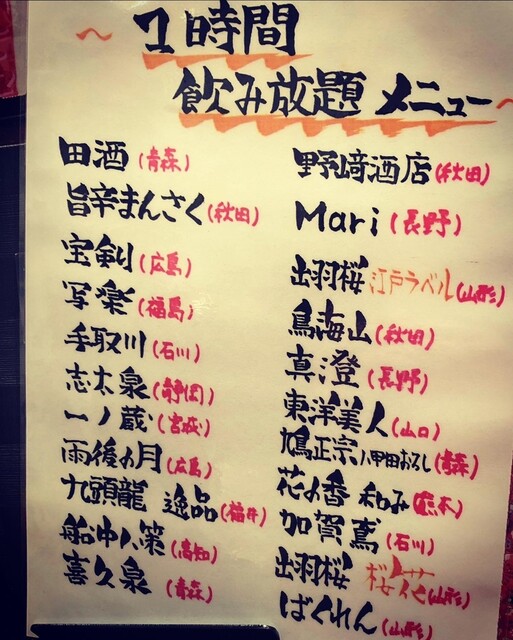 ～1時間
飲み放題メニュー～
田酒(青森)
旨辛まんさく(秋田)
宝剣(広島)
写楽(福島)
手取川(石川)
志太泉(静岡)
一ノ蔵(宮城)
雨後の月(広島)
九頭龍 逸品(福井)
船中八策(高知)
喜久泉(青森)
野﨑酒店(秋田)
Mari(長野)
出羽桜 江戸ラベル(山形)
鳥海山(秋田)
真澄(長野)
東洋美人(山口)
鳩正宗 八甲田おろし(青森)
花の香 和み(熊本)
加賀鳶(石川)
出羽桜 桜花(山形)
ばくれん(山形)